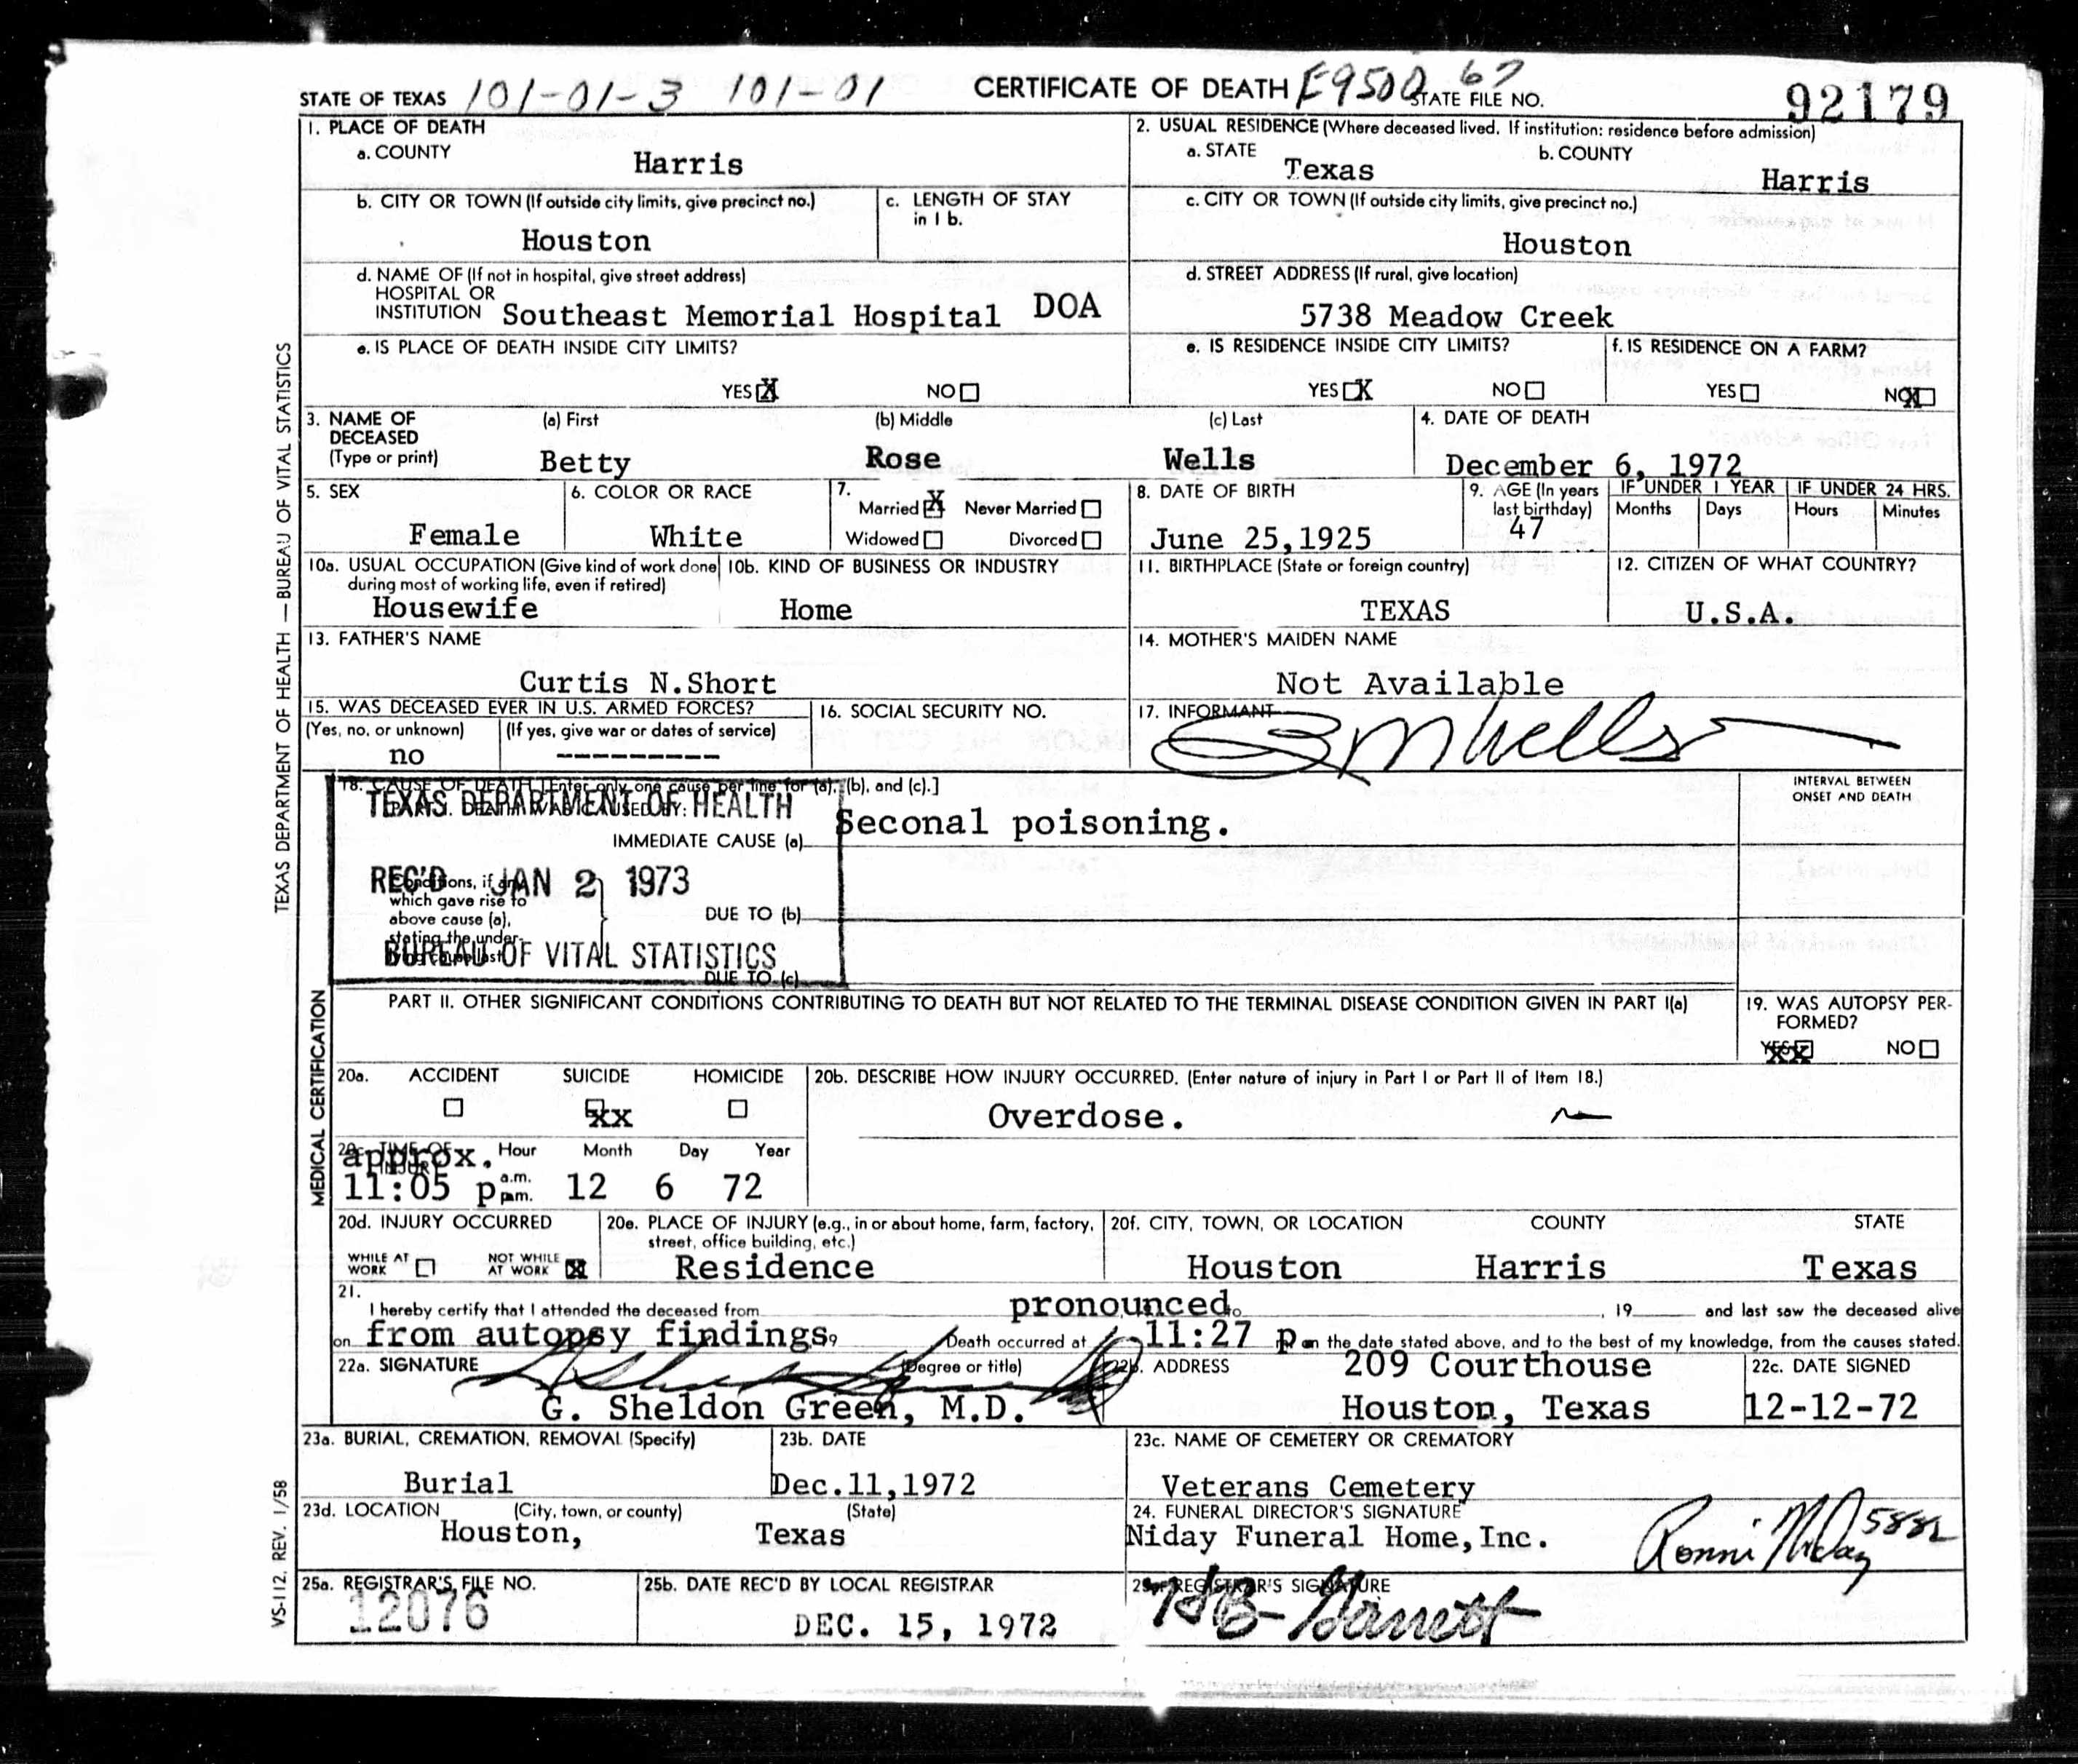 STATE OF TEXAS 101-01-3 101-01 CERTIFICATE OF DEATH E950 67 STATE FILE NO. 92179
1. PLACE OF DEATH
a. COUNTY Harris
2. USUAL RESIDENCE (Where deceased lived. If institution: residence before admission)
a. STATE Texas b. COUNTY Harris
b. CITY OR TOWN (If outside city limits, give precinct no.) Houston
c. LENGTH OF STAY in 1 b.
c. CITY OR TOWN (If outside city limits, give precinct no.) Houston
d. NAME OF (If not in hospital, give street address)
HOSPITAL OR
INSTITUTION Southeast Memorial Hospital DOA
d. STREET ADDRESS (If rural, give location)
5738 Meadow Creek
e. IS PLACE OF DEATH INSIDE CITY LIMITS?
YES X NO
e. IS RESIDENCE INSIDE CITY LIMITS?
YES X NO
f. IS RESIDENCE ON A FARM?
YES NO X
3. NAME OF DECEASED (Type or print)
(a) First (b) Middle (c) Last
Betty Rose Wells
4. DATE OF DEATH
December 6, 1972
5. SEX
Female
6. COLOR OR RACE
White
7. Married X Never Married
Widowed Divorced
8. DATE OF BIRTH
June 25,1925
9. AGE (In years last birthday)
47
IF UNDER 1 YEAR
Months Days
IF UNDER 24 HRS.
Hours Minutes
10a. USUAL OCCUPATION (Give kind of work done during most of working life, even if retired)
Housewife
10b. KIND OF BUSINESS OR INDUSTRY
Home
11. BIRTHPLACE (State or foreign country)
TEXAS
12. CITIZEN OF WHAT COUNTRY?
U.S.A.
13. FATHER'S NAME
Curtis N.Short
14. MOTHER'S MAIDEN NAME
Not Available
15. WAS DECEASED EVER IN U.S. ARMED FORCES?
(Yes, no, or unknown) (If yes, give war or dates of service)
no ---------
16. SOCIAL SECURITY NO.
17. INFORMANT
BM Wells
18. CAUSE OF DEATH [Enter only one cause per line for (a), (b), and (c).]
PART I. DEATH WAS CAUSED BY:
IMMEDIATE CAUSE (a) Seconal poisoning.
INTERVAL BETWEEN
ONSET AND DEATH
TEXAS DEPARTMENT OF HEALTH
REC'D JAN 2 1973
BUREAU OF VITAL STATISTICS
Conditions, if any,
which gave rise to
above cause (a),
stating the under-
lying cause last.
DUE TO (b)
DUE TO (c)
PART II. OTHER SIGNIFICANT CONDITIONS CONTRIBUTING TO DEATH BUT NOT RELATED TO THE TERMINAL DISEASE CONDITION GIVEN IN PART I(a)
19. WAS AUTOPSY PER-
FORMED?
YES xx NO
20a. ACCIDENT SUICIDE HOMICIDE
xx
20b. DESCRIBE HOW INJURY OCCURRED. (Enter nature of injury in Part I or Part II of Item 18.)
Overdose.
20c. TIME OF INJURY Hour Month Day Year
approx.
11:05 p a.m. p.m. 12 6 72
20d. INJURY OCCURRED
WHILE AT WORK NOT WHILE AT WORK X
20e. PLACE OF INJURY (e.g., in or about home, farm, factory, street, office building, etc.)
Residence
20f. CITY, TOWN, OR LOCATION COUNTY STATE
Houston Harris Texas
21.
I hereby certify that I attended the deceased from pronounced to , 19 and last saw the deceased alive
on from autopsy findings, Death occurred at 11:27 p on the date stated above, and to the best of my knowledge, from the causes stated.
22a. SIGNATURE (Degree or title)
G. Sheldon Green, M.D.
22b. ADDRESS
209 Courthouse
Houston, Texas
22c. DATE SIGNED
12-12-72
23a. BURIAL, CREMATION, REMOVAL (Specify)
Burial
23b. DATE
Dec.11,1972
23c. NAME OF CEMETERY OR CREMATORY
Veterans Cemetery
23d. LOCATION (City, town, or county) (State)
Houston, Texas
24. FUNERAL DIRECTOR'S SIGNATURE
Niday Funeral Home,Inc. Ronni Niday 5882
25a. REGISTRAR'S FILE NO.
12076
25b. DATE REC'D BY LOCAL REGISTRAR
DEC. 15, 1972
25c. REGISTRAR'S SIGNATURE
HB Garrett
TEXAS DEPARTMENT OF HEALTH — BUREAU OF VITAL STATISTICS
MEDICAL CERTIFICATION
VS-112, REV. 1/58